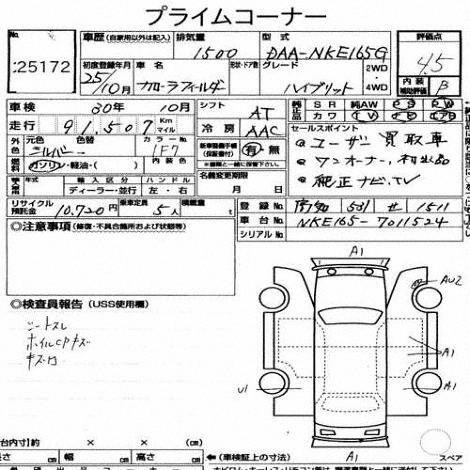 プライムコーナー
No.
25172
車歴 (自家用以外は記入)
排気量
型式
評価点
1500
DAA-NKE165G
4.5
初度登録年月
車名
形状・ドア数
グレード
2WD
4WD
25/10月
カローラフィールダー
ハイブリット
内装
補助評価
B
車検
30年 10月
シフト
AT
走行
91,507
Km
マイル
冷房
AAC
SR 純AW
カワ
外色
元色
色替
カラーNo.
内装色
シルバー
1F7
燃料
ガソリン・軽油・( )
有 無
セールスポイント
ユーザー買取車
ワンオーナー、
純正ナビ、TV
名義変更期限
月 日
年式
輸入区分
ハンドル
ディーラー・並行
左・右
リサイクル預託金
10,720円
乗車定員
5人
積載量
t
登録No.
531
1511
車台No.
NKE165-7011524
シリアルNo.
◎注意事項 (修復・不具合箇所および状態等)
◎検査員報告 (USS使用欄)
シートスレ
ホイルCPキズ
A1
AU2
A1
U1
A1
A1
台内寸)約 × ×
長さ cm 幅 cm 高さ cm
(車検証上の寸法)
スペア